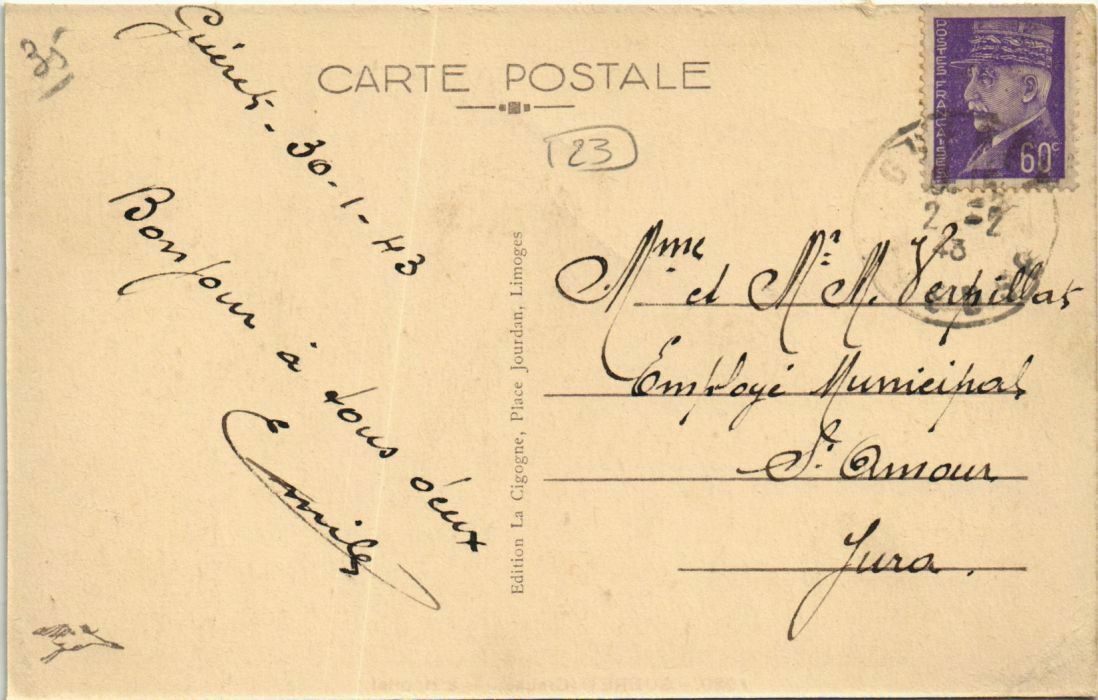 CARTE POSTALE
POSTES FRANÇAISES
60c
23
Guéret - 30-1-43
Bonjour à tous deux
Emile
Edition La Cigogne, Place Jourdan, Limoges
2 -2
43
Mme et Mr M. Verpillat
Employé Municipal
St. Amour
Jura.